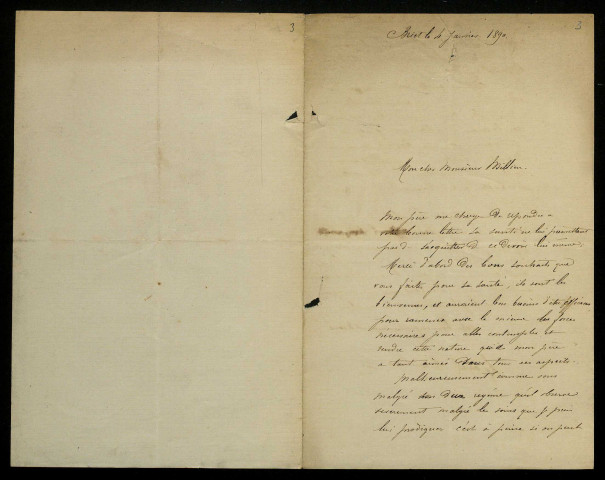 3
3
Brest le 4 Janvier 1890
Mon cher Monsieur
Mon père me charge de répondre a
votre bonne lettre sa santé ne lui permettant
pas de s'acquitter de ce devoir lui même
Merci d'abord des bons souhaits que
vous faites pour sa santé, ils sont les
bienvenus, et auraient bien besoin d'être
pour ramener avec le mieux les forces
nécessaires pour aller contempler et
rendre cette nature que mon père
a tant aimée dans tous ses aspects.
Malheureusement comme vous
malgré dur régime qu'il observe
sévèrement malgré les soins que je puis
lui prodiguer c'est à peine si on peut